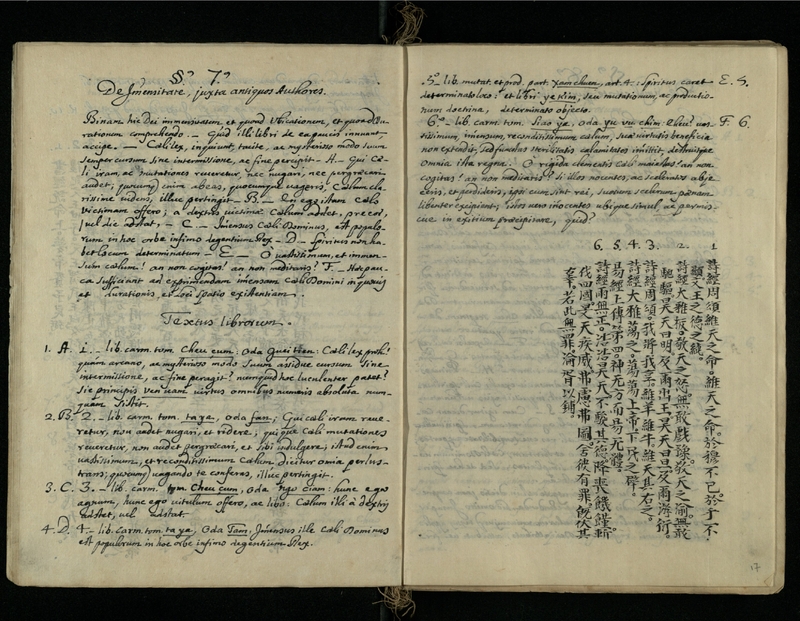 §§ 7.º
De Imensitate, juxta antiquos Authores.
Binam hic Dei immensitatem, et quoad Ubicationem, et quoad du-
rationem comprehendo. — Quid illi libri de ea paucis innuant,
accipe. — Cæli lex, inquiunt, tacite, ac mysterioso modo suum
semper cursum sine intermissione, ac fine percipit — A. — Qui Cæ-
li iram, ac mutationes reveretur, nec nugari, nec pergræcari
audet; quocumq; enim abeas, quocumque vageris, Cælum cla-
rissime videns, illuc pertingit — B. — En ego istam Cælo
victimam offero; a dextris victimæ Cælum addet, precor,
vel hic adstat, — C — Imensus Cæli Dominus, est populo-
rum in hoc orbe infimo degentium Rex — D — Spiritus non ha-
bet locum determinatum — E — O vastissimum, et immen-
sum cælum! an non cogitas! an non meditaris? F — Hæc pau-
ca sufficiant ad exprimendam imensam Cæli Domini in quavis
et durationis, et loci spatio existentiam.
Textus librorum.
1. A. 1. — lib. carm. tom. Cheu cum: Oda Guei tien: Cæli lex proh!
quàm arcano, ac mysterioso modo suum assidue cursum sine
intermissione, ac fine peragit? nunquid hoc luculenter patet?
sic principis ven vam virtus omnibus numeris absoluta num-
quam sistit.
2. B. 2. — lib. carm. tom. ta ya, oda fan; Qui cæli iram reve-
retur, non audet nugari, et ridere; qui que Cæli mutationes
reveretur, non audet pergræcari, et sibi indulgere; illud enim
vastissimum, et reconditissimum Cælum dicitur omnia perlus-
trans; quocumq; vagando te conferas, illuc pertingit.
3. C. 3. — lib. carm. tom. Cheu cum, oda ngo ciam: hunc ego
agnum, hunc ego vitulum offero, ac libo: Cælum illi à dextris
adstet, vel adstat.
4. D. 4. — lib. carm. tom. ta ya, oda Tam: Imensus ille Cæli Dominus
est populorum in hoc orbe infimo degentium Rex.
5.º — lib. mutat. et prod. part. xam chuen, art. 4.: Spiritus caret E. 5.
determinato loco: et libri ye kim, seu mutationum, ac productio-
num doctrina, determinato objecto.
6.º — lib. carm. tom. Siao ya. Oda yu vu chim: Eheu! vas- F. 6.
tissimum, imensum, reconditissimum cælum, suæ virtutis beneficia
non extendit, sed funestas sterilitatis calamitates imittit, destruitque
omnia ista regna. O rigida clementis Cæli maiestas! an non
cogitas! an non meditaris? si illos nocentes, ac scelestos abje-
ceris, et perdideris, ipsi cum sint rei, suorum scelerum pœnam
libenter excipient; istos vero inocentes ubique simul, ac permis-
cue in exitium præcipitare, quid?
1 詩經周頌維天之命。維天之命。於穆不已。於乎不
顯文王之德之純。
2. 詩經大雅板。敬天之怒。無敢戲豫。敬天之渝。無敢
馳驅。昊天曰明。及爾出王。昊天曰旦。及爾游衍。
3. 詩經周頌。我將我享。維羊維牛。維天其右之。
4. 詩經大雅蕩之。蕩蕩上帝。下民之辟。
5. 易經上傳。第四。神无方而易无體。
6. 詩經雨無正。浩浩昊天。不駿其德。降喪饑饉。斬
伐四國。旻天疾威。弗慮弗圖。舍彼有罪。旣伏其
辜。若此無罪。淪胥以鋪。
17